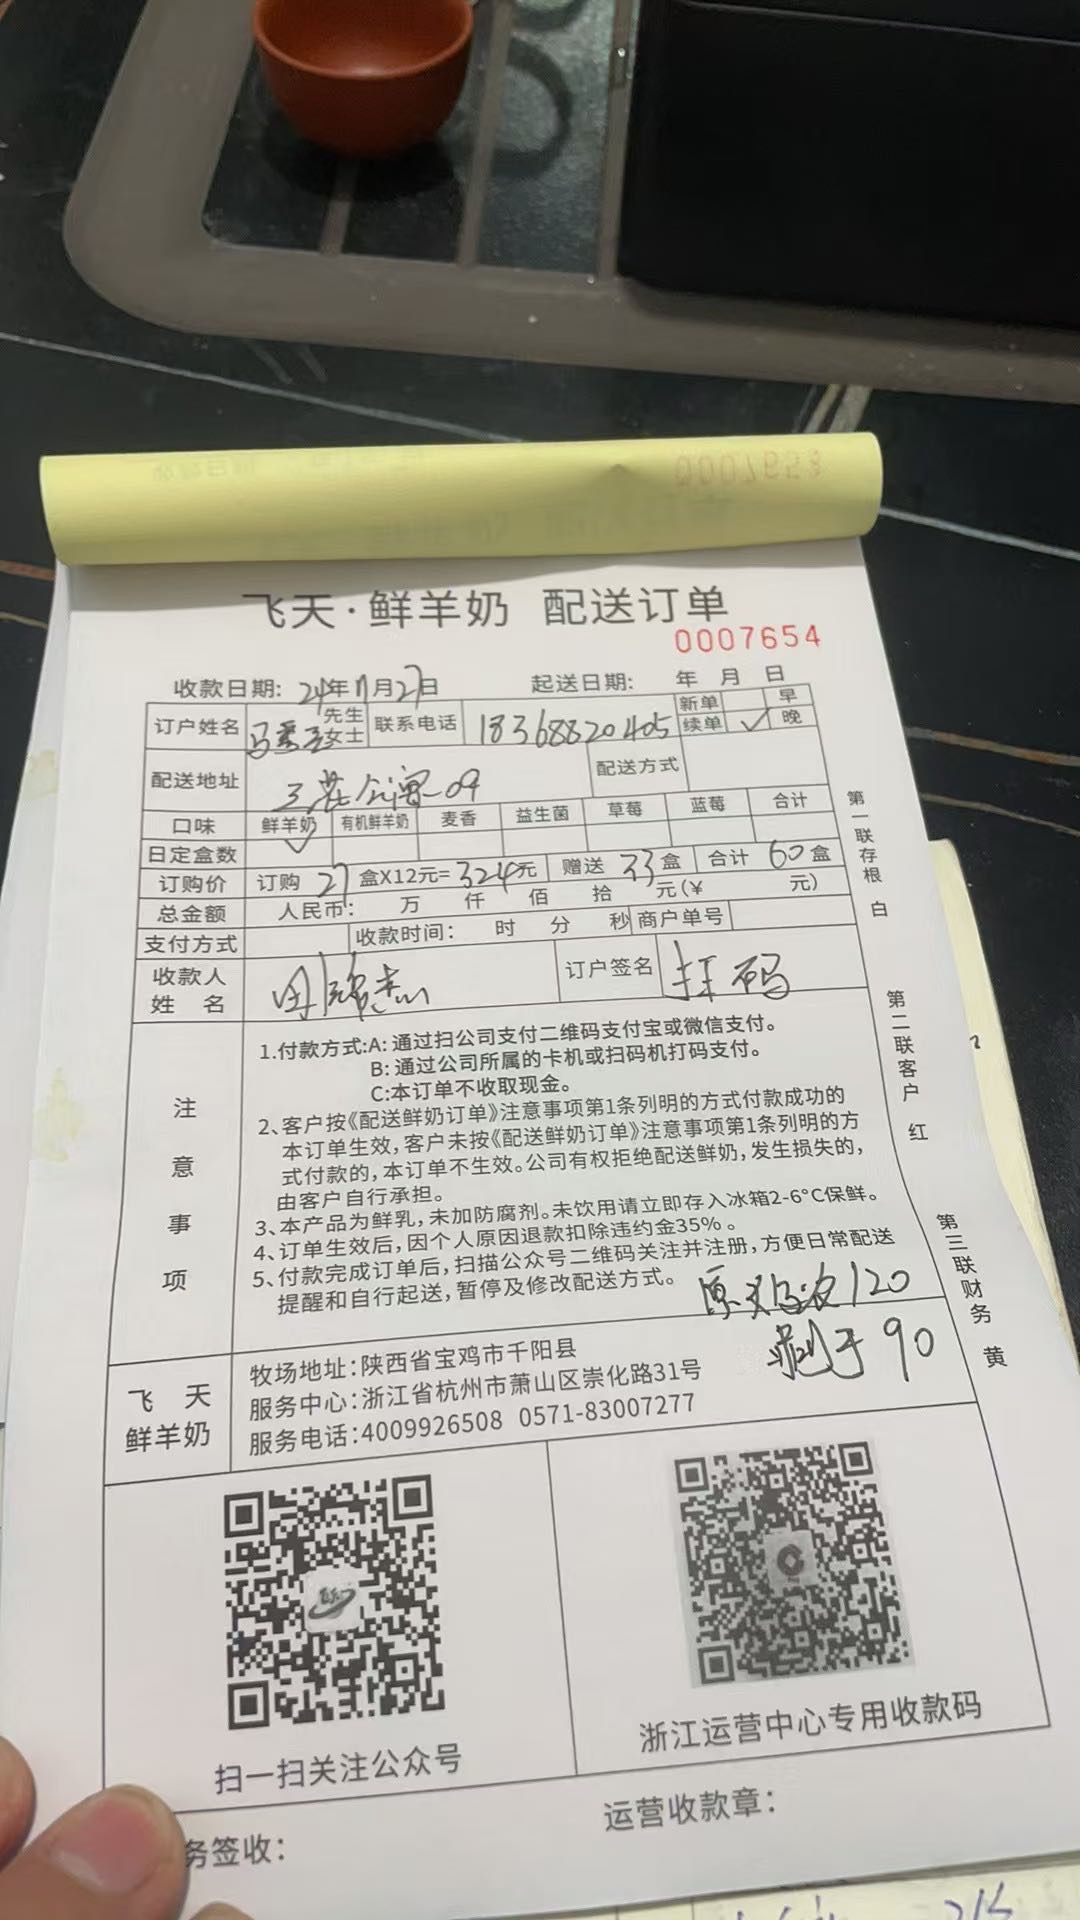 0007653
飞天·鲜羊奶 配送订单
0007654
收款日期: 24年11月27日 起送日期: 年 月 日
订户姓名 马 先生 女士 联系电话 18368820405 新单 早 续单 ✓ 晚
配送地址 公寓 09 配送方式
口味 鲜羊奶 有机鲜羊奶 麦香 益生菌 草莓 蓝莓 合计
日定盒数 ✓
订购价 订购 27 盒X12元= 324元 赠送 33 盒 合计 60 盒
总金额 人民币: 万 仟 佰 拾 元(¥ 元)
支付方式 收款时间: 时 分 秒 商户单号
收款人姓名 订户签名 扫码
注意事项
1.付款方式:A: 通过扫公司支付二维码支付宝或微信支付。
B: 通过公司所属的卡机或扫码机打码支付。
C:本订单不收取现金。
2、客户按《配送鲜奶订单》注意事项第1条列明的方式付款成功的
本订单生效,客户未按《配送鲜奶订单》注意事项第1条列明的方
式付款的,本订单不生效。公司有权拒绝配送鲜奶,发生损失的,
由客户自行承担。
3、本产品为鲜乳,未加防腐剂。未饮用请立即存入冰箱2-6°C保鲜。
4、订单生效后,因个人原因退款扣除违约金35%。
5、付款完成订单后,扫描公众号二维码关注并注册,方便日常配送
提醒和自行起送,暂停及修改配送方式。
120
90
飞天鲜羊奶
牧场地址:陕西省宝鸡市千阳县
服务中心:浙江省杭州市萧山区崇化路31号
服务电话:4009926508 0571-83007277
第一联存根 白
第二联客户 红
第三联财务 黄
扫一扫关注公众号
浙江运营中心专用收款码
务签收:
运营收款章: